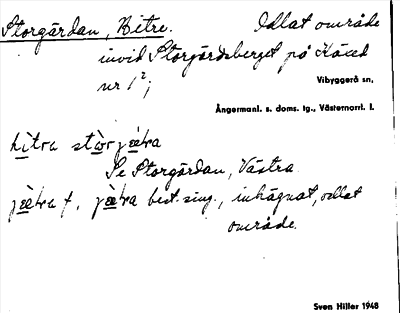 Storgärdan, Hitre. Odlat område
invid Storgärdsberget på Käxed
nr 1²;
Vibyggerå sn,
Ångermanl. s. doms. tg., Västernorrl. l.
hitra stòrjæ̀ra
Se Storgärdan, Västra
jæ̀ra f. jæ̀ra best. sing., inhägnat, odlat
område.
Sven Hiller 1948